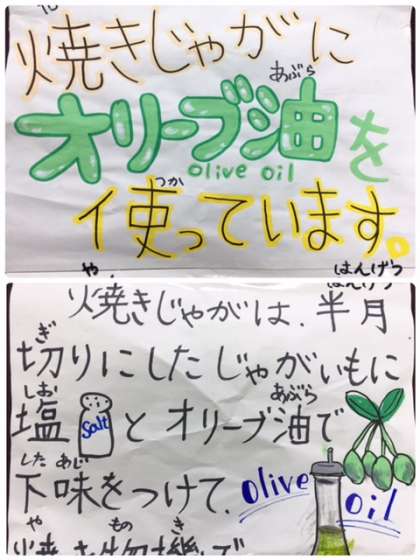 焼きじゃがに
あぶら
オリーブ油を
olive oil
つか
使っています。
はんげつ
や はんげつ
焼きじゃがは、半月
ぎ
切りにしたじゃがいもに
しお あぶら
塩 salt とオリーブ油で
した あじ
下味をつけて、
olive oil
や もの き
焼き物機で